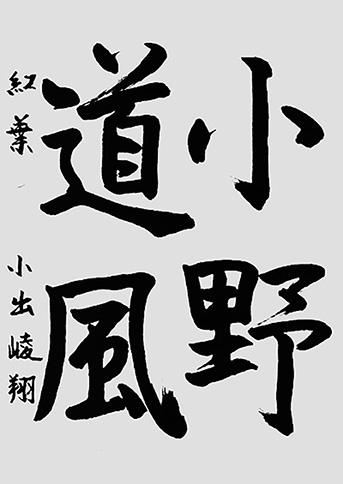 小野
道風
紅葉 小出崚翔